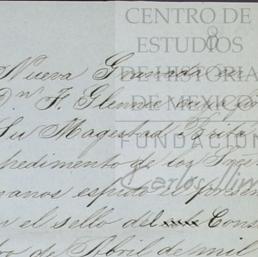 CENTRO DE
ESTUDIOS
DE HISTORIA
DE MEXICO
FUNDACION
Carlos Slim
8
Nueva Granada en
Dⁿ F. Glennie
Su Magestad Brita
pedimento de los Sres
manos espido el
n el sello del Cons
de Abril de mil